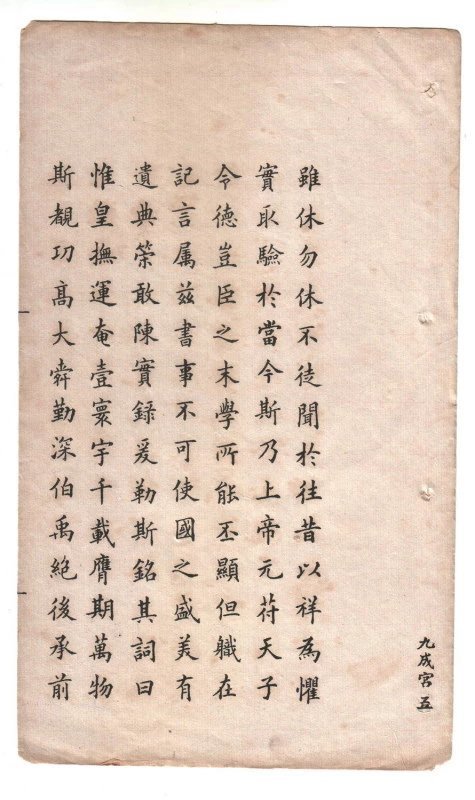 雖休勿休不徒聞於往昔以祥為懼
實取驗於當今斯乃上帝元苻天子
令德豈臣之末學所能丕顯但軄在
記言属茲書事不可使國之盛美有
遺典筞敢陳實錄爰勒斯銘其詞曰
惟皇撫運奄壹寰宇千載膺期萬物
斯覩功髙大舜勤深伯禹絕後承前
九成宮五